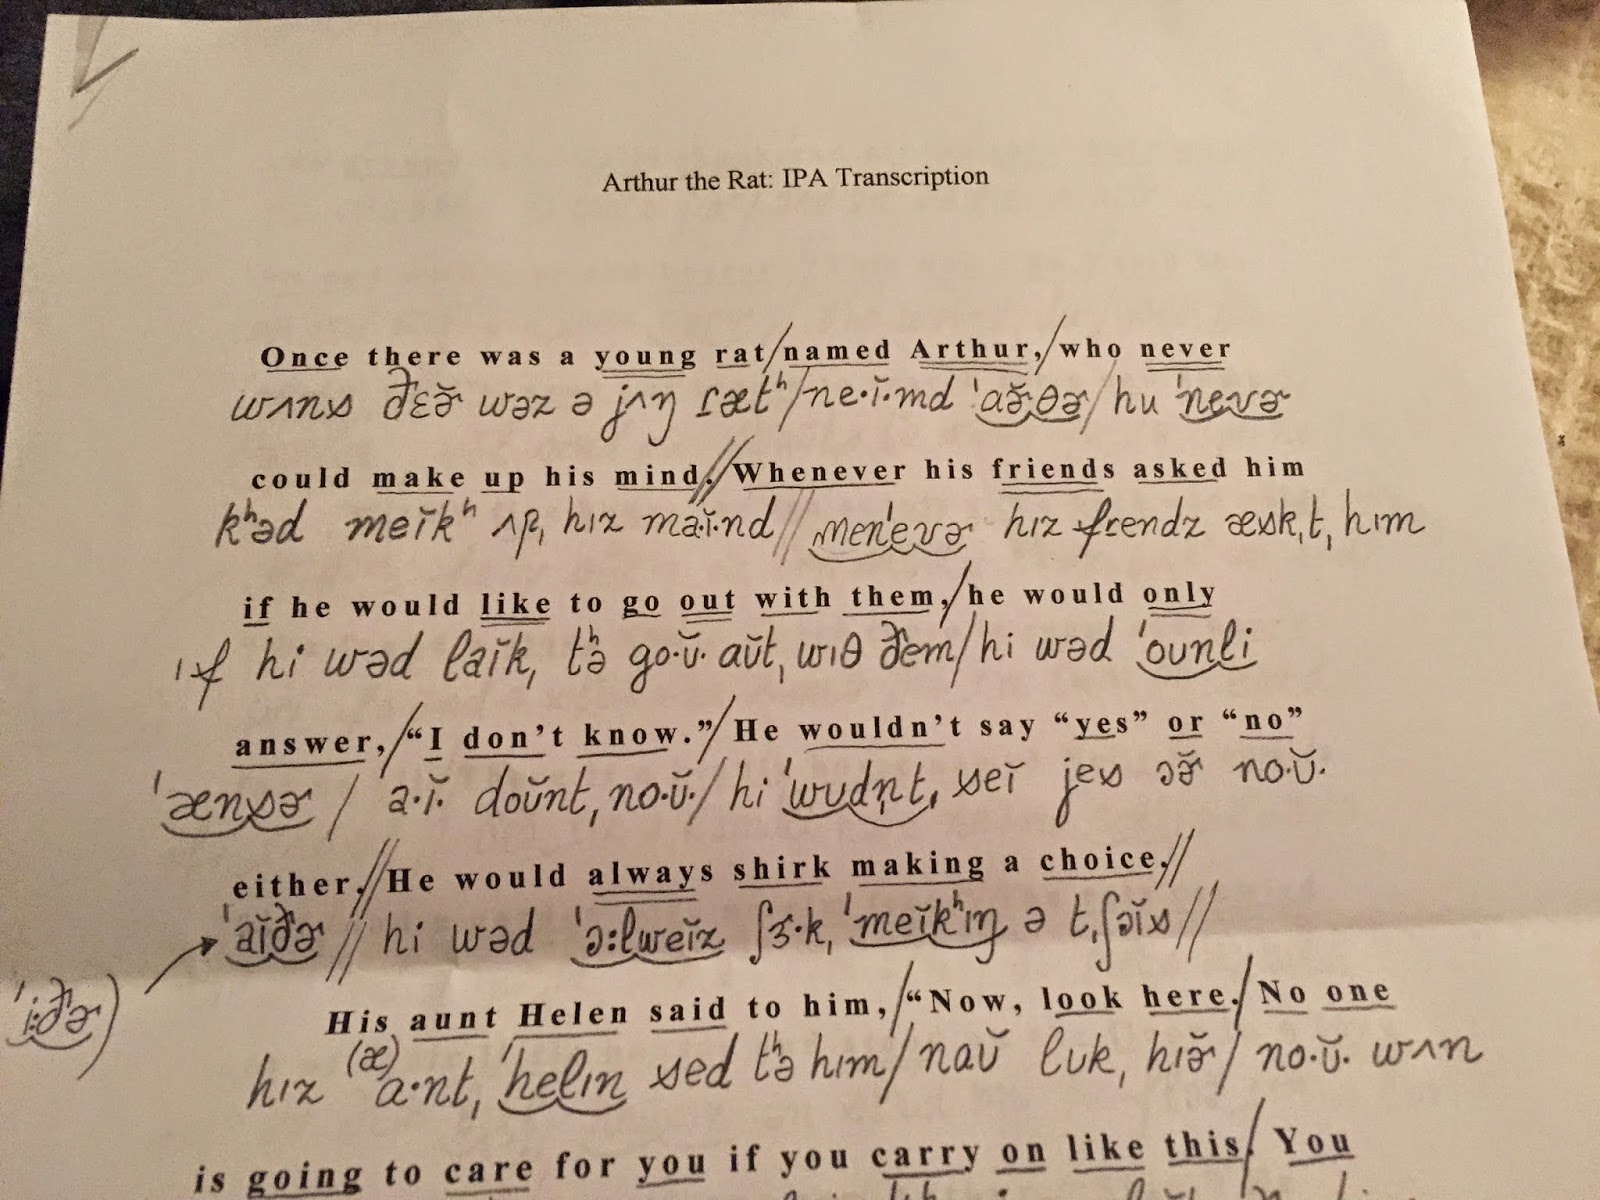 Arthur the Rat: IPA Transcription
Once there was a young rat/named Arthur,/who never
wʌns ðɛə̆˞ wəz ə jʌŋ ɾætʰ/ne·ĭ·md ˈaə̆˞θɚ/hu ˈnevɚ
could make up his mind.//Whenever his friends asked him
kʰəd meĭkʰ ʌp, hɪz ma·ĭ·nd// ʍenˈevɚ hɪz fɾendz æsk,t, hɪm
if he would like to go out with them,/he would only
ɪf hi wəd laĭk, tʰə go·ŭ· aŭt, wɪθ ðem/hi wəd ˈoʊnli
answer,/“I don’t know.”/He wouldn’t say “yes” or “no”
ˈænsɚ / a·ĭ· doŭnt, no·ŭ·/hi ˈwʊdn̩t, seĭ jes ɔə̆˞ no·ŭ·
either.//He would always shirk making a choice.//
ˈaĭðɚ// hi wəd ˈɔ:lweĭz ʃɝ·k, ˈmeĭkʰɪŋ ə t,ʃɔĭs//
ˈi:ðɚ)
His aunt Helen said to him,/“Now, look here./No one
hɪz (æ) a·nt, ˈhelɪn sed tʰə hɪm/naŭ lʊk, hɪə̆˞/no·ŭ· wʌn
is going to care for you if you carry on like this/ You